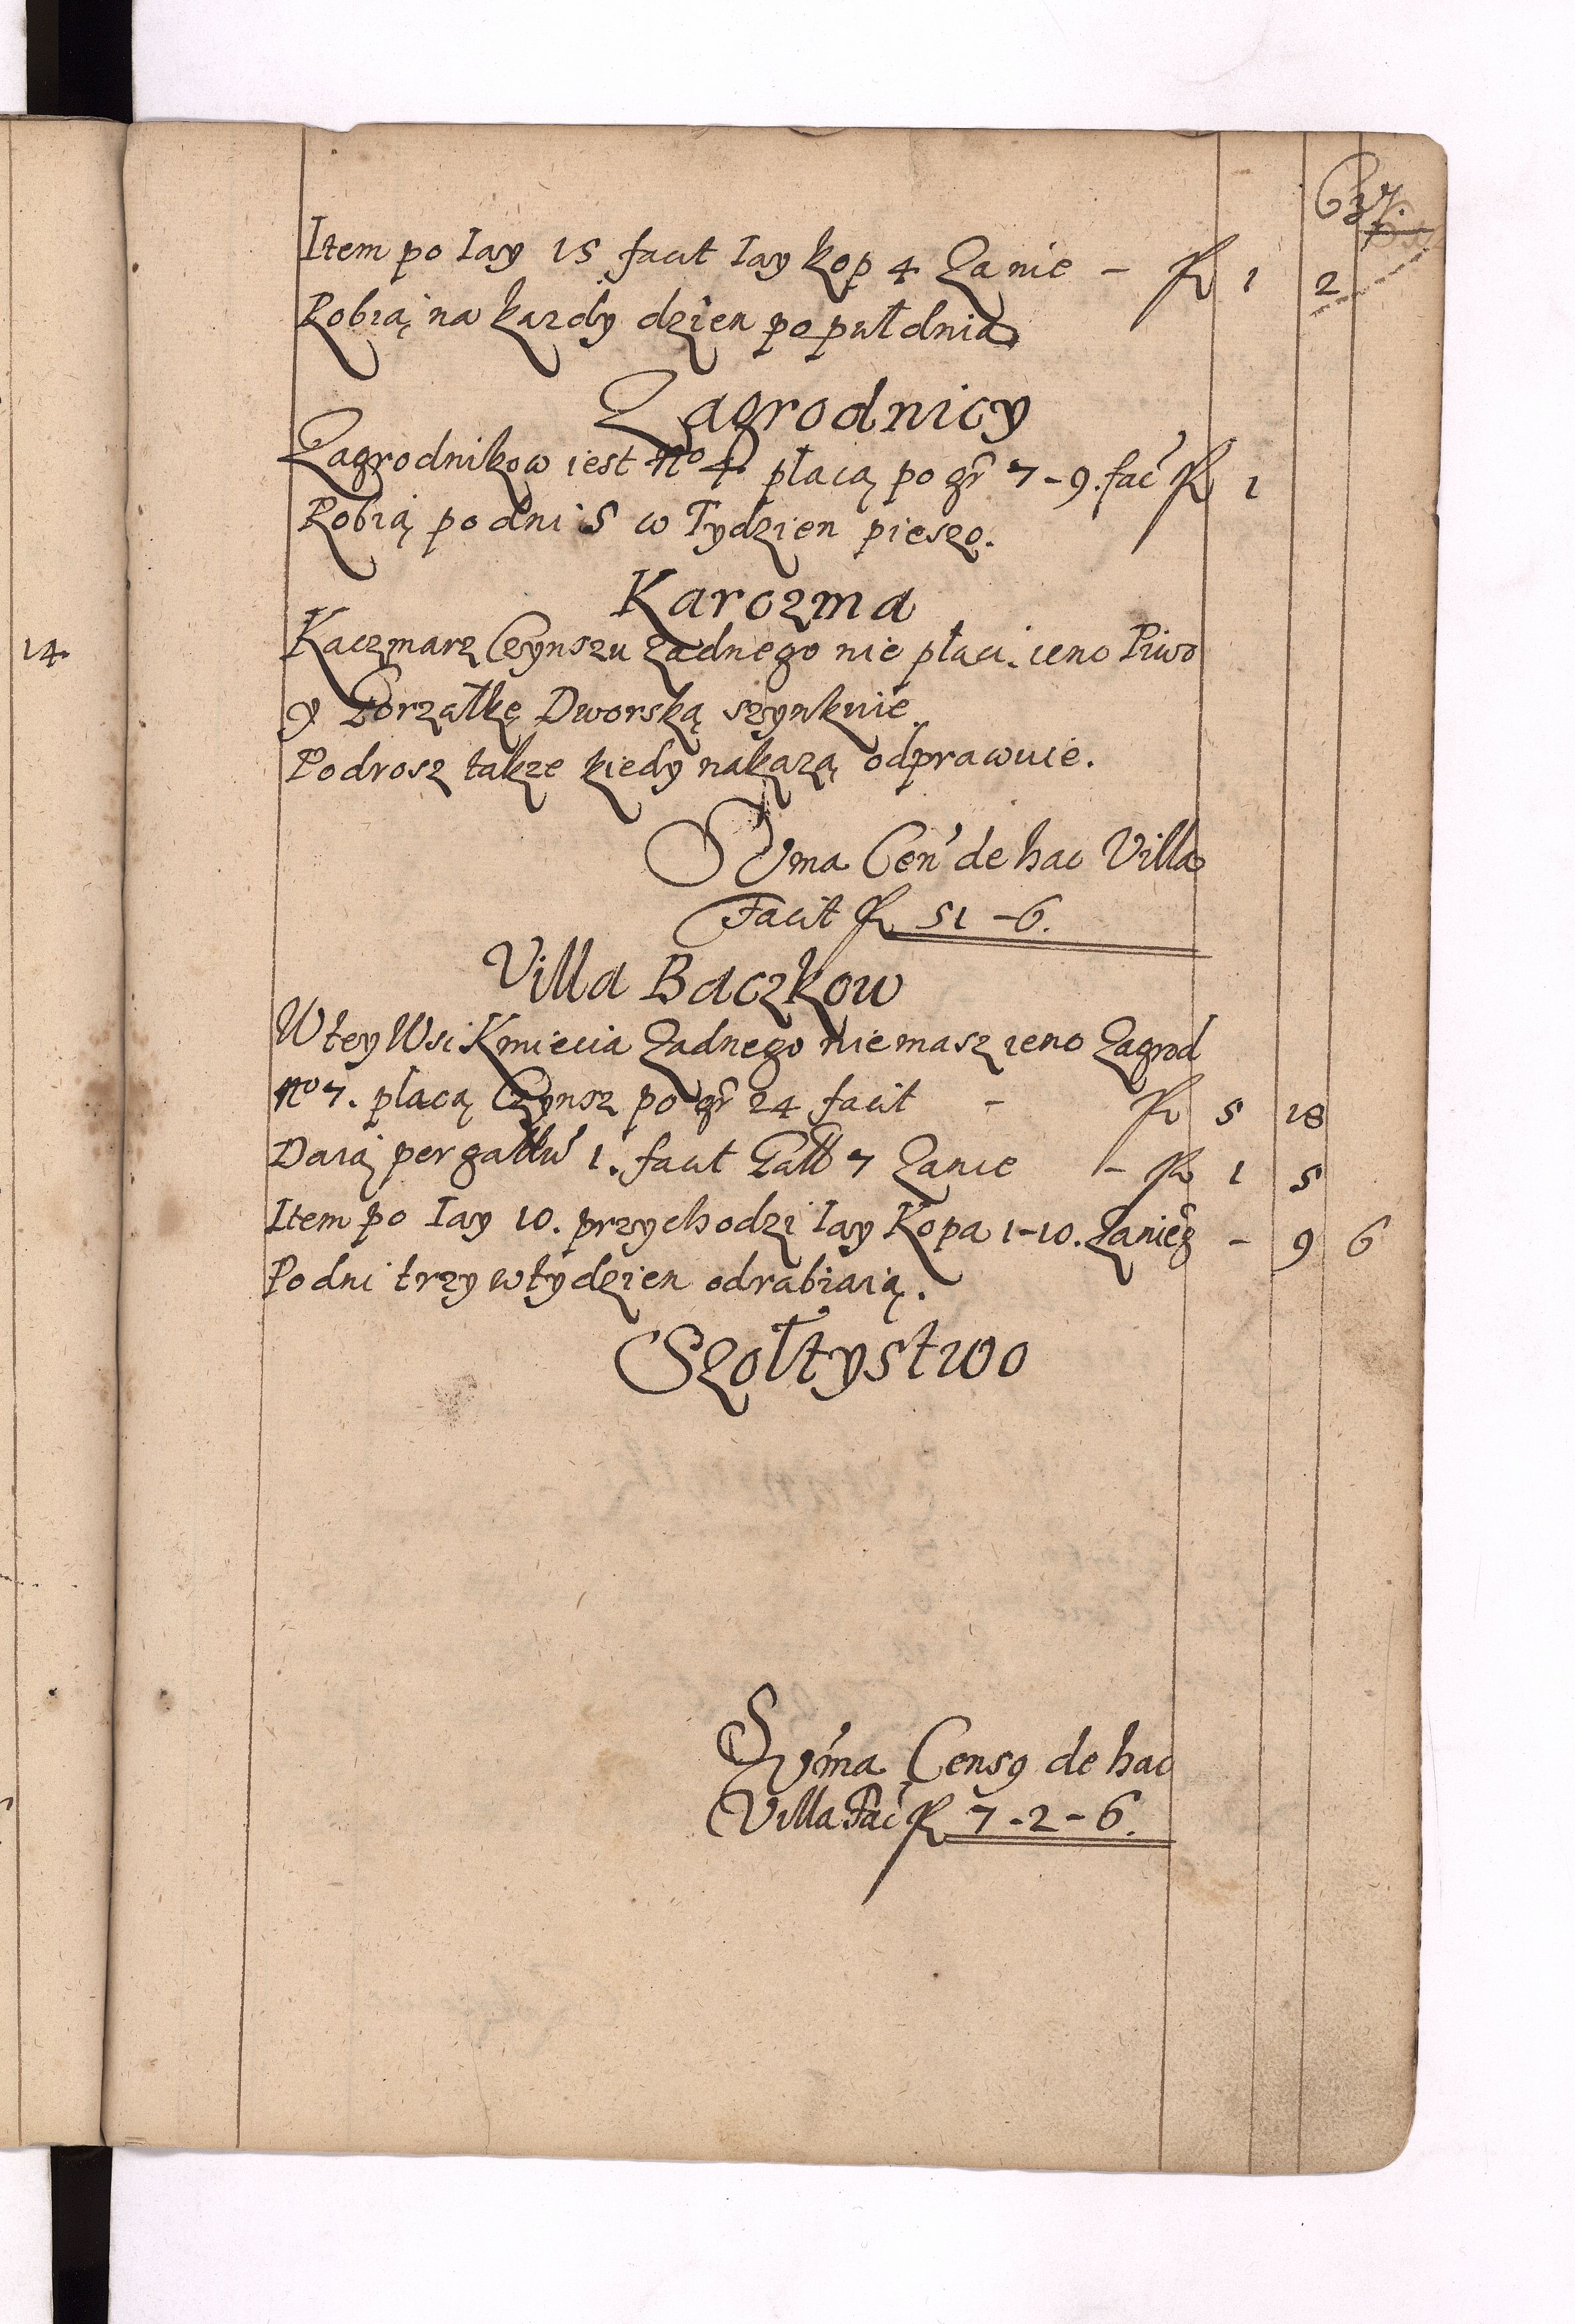 637.
Item po Iay 15 facit Iay kop 4 Zanie - fl 1 2
Robią na kazdy dzien po puł dnia
Zagrodnicy
Zagrodnikow iest No 4. płacą po gr 7-9. fac fl 1
Robią po dni 5 w Tydzien pieszo.
Karczma
Kaczmarz Czynszu zadnego nie płaci. ieno Piwo
y Gorzałkę Dworską szynkuie
Podrosz takze kiedy nakazą odprawuie.
Suma Cen de hac Villa
Facit fl 51-6.
Villa Baczkow
W tey Wsi Kmiecia Zadnego nie masz ieno Zagrod
No 7. płacą Czynsz po gr 24 facit - fl 5 18
Daią per gallu 1. facit Gall 7 Zanie - fl 1 5
Item po Iay 10. przychodzi Iay Kopa 1-10. Zanie g - 9 6
Po dni trzy w tydzien odrabiaią.
Szołtystwo
Suma Cens9 de hac
Villa Fac fl 7-2-6.
14.